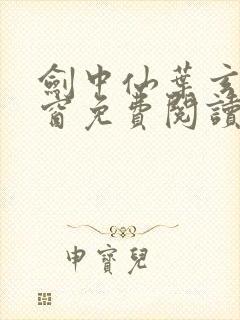 劍中仙葉玄
窗免費閱讀
申寶兒